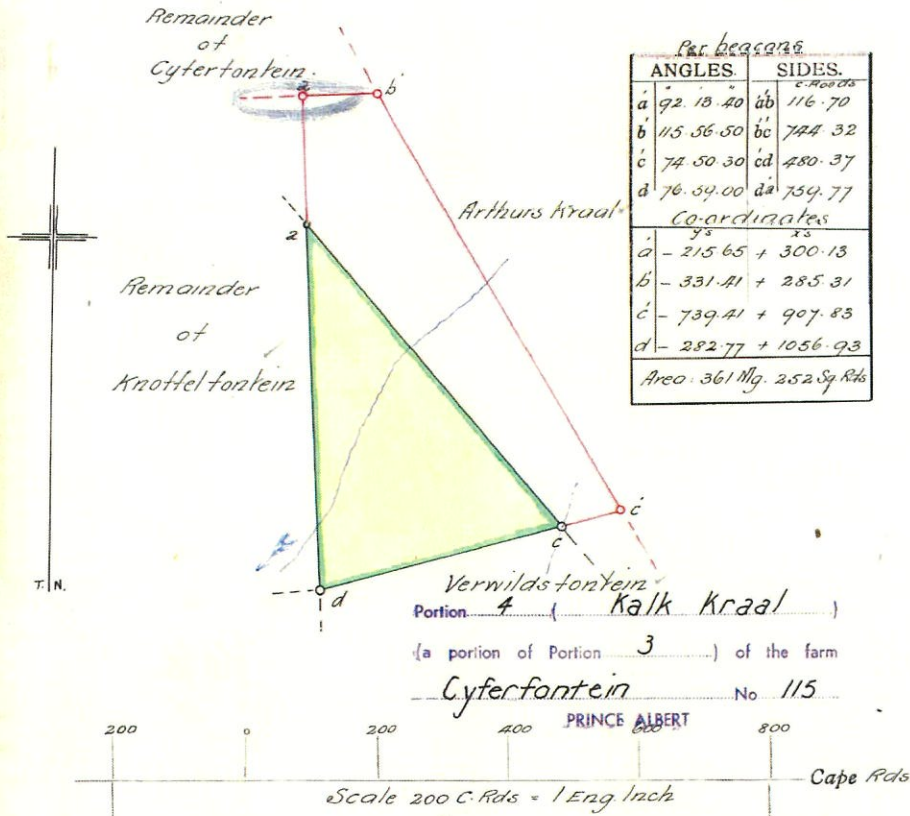 Remainder
of
Cyferfontein.
a' b'
Per beacons
ANGLES. SIDES.
° ' " C. Roods
a' 92.13.40 a'b' 116.70
b' 115.56.50 b'c' 744.32
c' 74.50.30 c'd 480.37
d 76.59.00 da' 759.77
Co-ordinates
y's x's
a' - 215.65 + 300.13
b' - 331.41 + 285.31
c' - 739.41 + 907.83
d - 282.77 + 1056.93
Area: 361 Mg. 252 Sq. Rds
Arthurs Kraal
a
Remainder
of
Knoffelfontein
c'
c
T. N.
d
Verwildsfontein
Portion 4 ( Kalk Kraal )
(a portion of Portion 3 ) of the farm
Cyferfontein No 115
PRINCE ALBERT
200 0 200 400 600 800
Cape Rds
Scale 200 C. Rds = 1 Eng. Inch